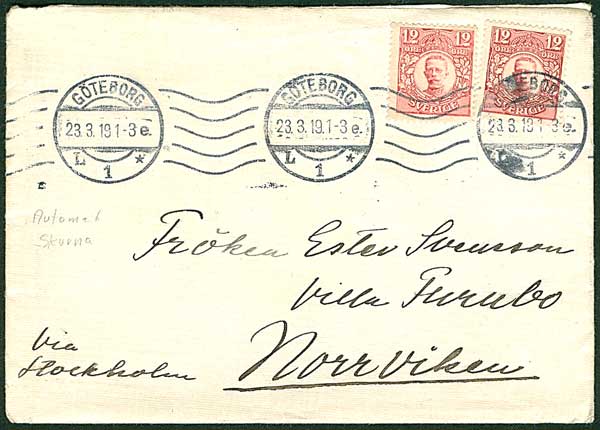 12 12
ÖRE ÖRE
SVERIGE
12 12
ÖRE ÖRE
SVERIGE
GÖTEBORG
23.3.19.1-3 e.
L 1 *
GÖTEBORG
23.3.19.1-3 e.
L 1 *
GÖTEBORG
23.3.19.1-3 e.
L 1 *
Automat
Skurna
Fröken Ester Svensson
Villa Furubo
Norrviken
Via
Stockholm